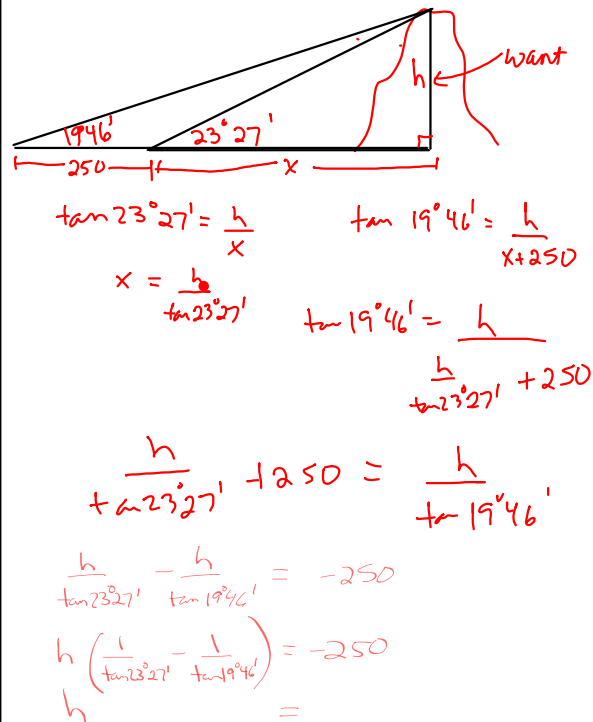 want
h
19 46'
23° 27'
250
x
tan 23° 27' = h/x
tan 19° 46' = h/(x+250)
x = h/tan 23° 27'
tan 19° 46' = h/(h/tan 23° 27' + 250)
h/tan 23° 27' + 250 = h/tan 19° 46'
h/tan 23° 27' - h/tan 19° 46' = -250
h (1/tan 23° 27' - 1/tan 19° 46') = -250
h =